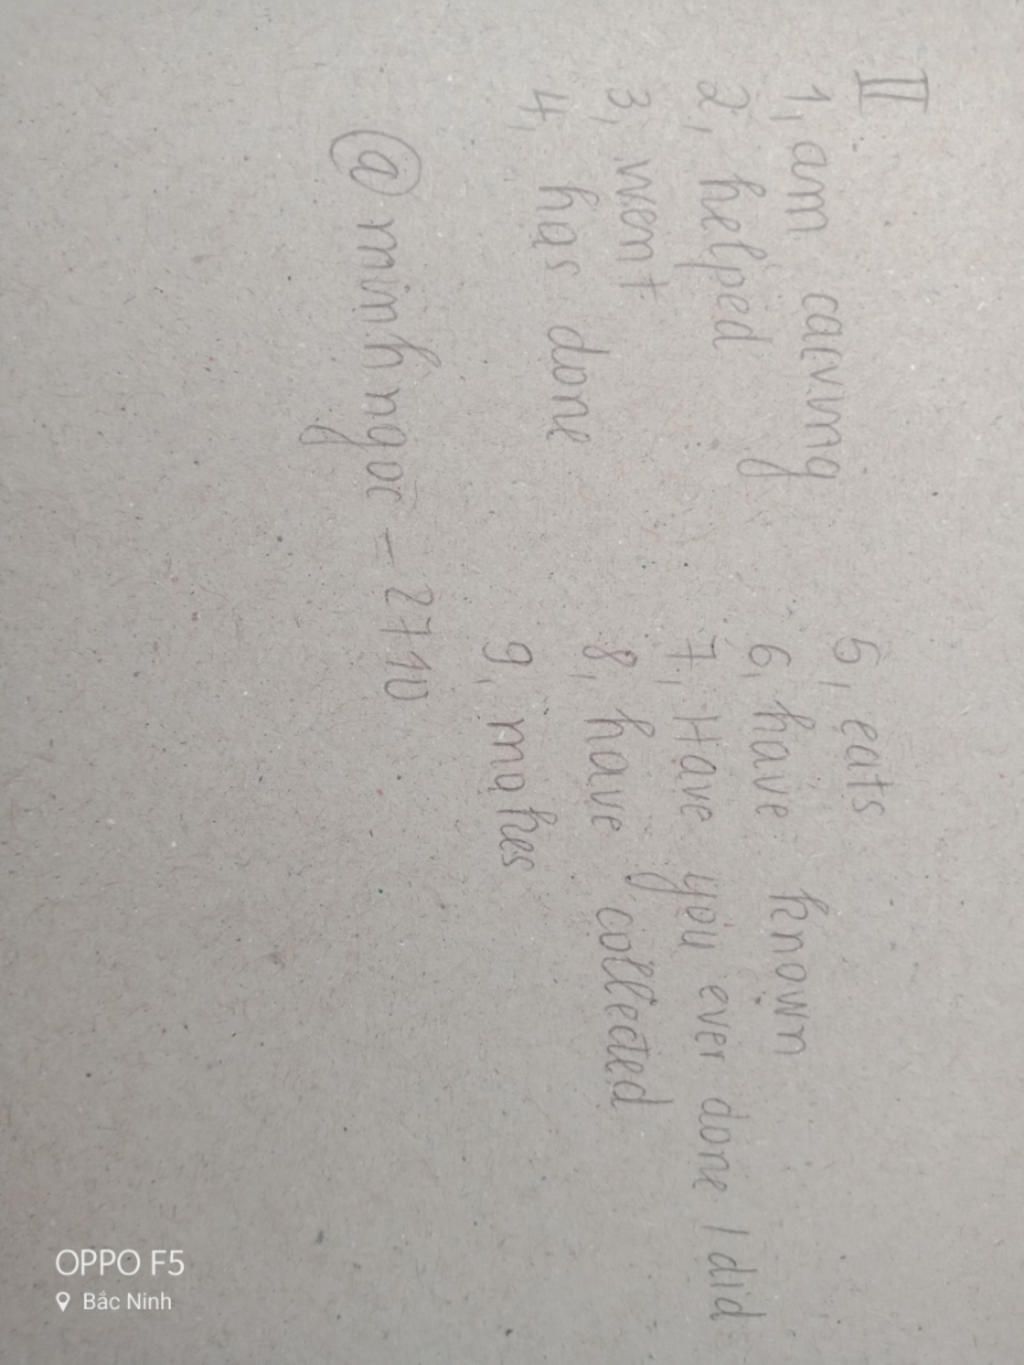 II
1, am carving
2, helped
3, went
4, has done
5, eats
6, have known
7, Have you ever done / did
8, have collected
9, makes
@minhngoc - 2710
OPPO F5
Bắc Ninh